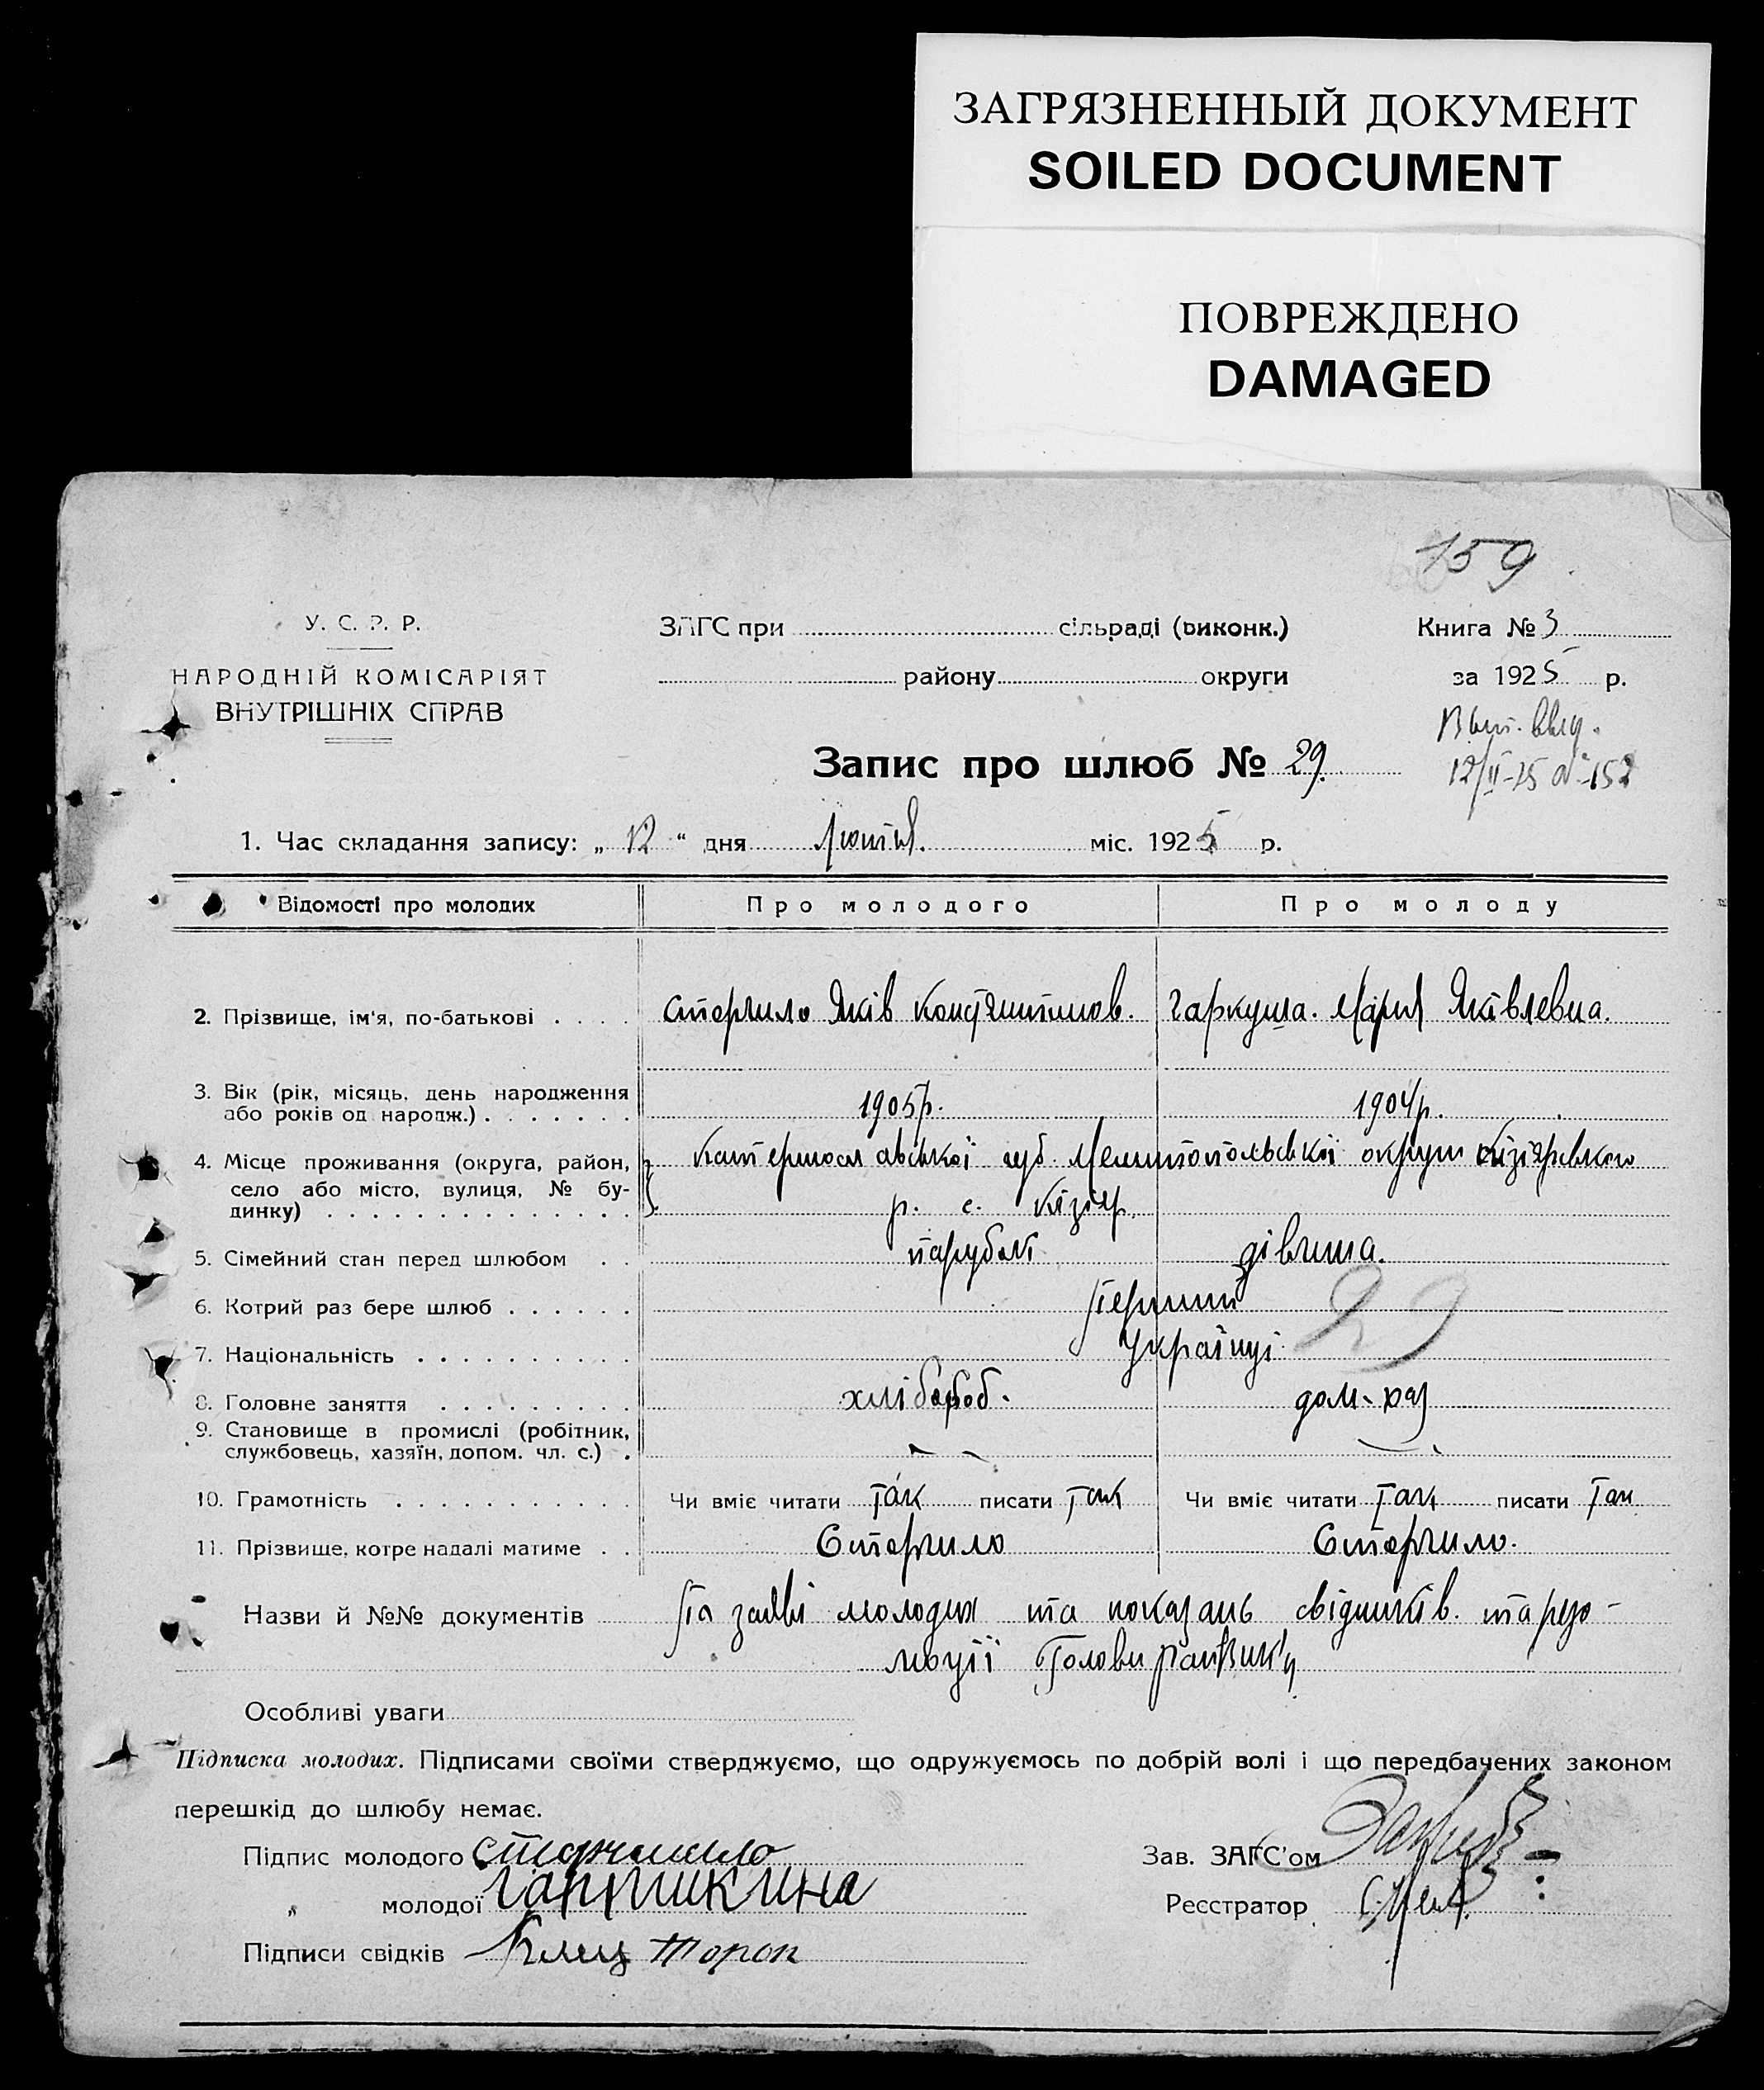 ЗАГРЯЗНЕННЫЙ ДОКУМЕНТ
SOILED DOCUMENT
ПОВРЕЖДЕНО
DAMAGED
159
У. С. Р. Р.
НАРОДНІЙ КОМІСАРІЯТ
ВНУТРІШНІХ СПРАВ
ЗАГС при сільраді (виконк.)
району округи
Книга № 3
за 1925 р.
12/II-25 № 152
Запис про шлюб № 29.
1. Час складання запису: „ 12 “ дня лютия. міс. 1925 р.
Відомості про молодих Про молодого Про молоду
2. Прізвище, ім'я, по-батькові . . . . Сторчило Яків Констянтинов. Гаркуша. Мария Яківлевна.
3. Вік (рік, місяць, день народження
або років од народж.) . . . . . . . 1905р. 1904р.
4. Місце проживання (округа, район,
село або місто, вулиця, № бу-
динку) . . . . . . . . . . . . . .
Катеринославської губ. Мелитопольскої округи Кізіярвського
р. с. Кізіяр.
5. Сімейний стан перед шлюбом . . парубок дівчина.
6. Котрий раз бере шлюб . . . . . . Перший
7. Національність . . . . . . . . . . Українці
29
8. Головне заняття . . . . . . . . . хлібороб. дом. хаз
9. Становище в промислі (робітник,
службовець, хазяїн, допом. чл. с.) .
10. Грамотність . . . . . . . . . . . Чи вміє читати так писати так Чи вміє читати так писати так
11. Прізвище, котре надалі матиме . . Сторчило Сторчило.
Назви й №№ документів По заяві молодих та показань свідиків. та резо-
люції Голови райвик'у
Особливі уваги
Підписка молодих. Підписами своїми стверджуємо, що одружуємось по добрій волі і що передбачених законом
перешкід до шлюбу немає.
Підпис молодого Сторчило Зав. ЗАГС'ом
„ молодої Реєстратор
Підписи свідків